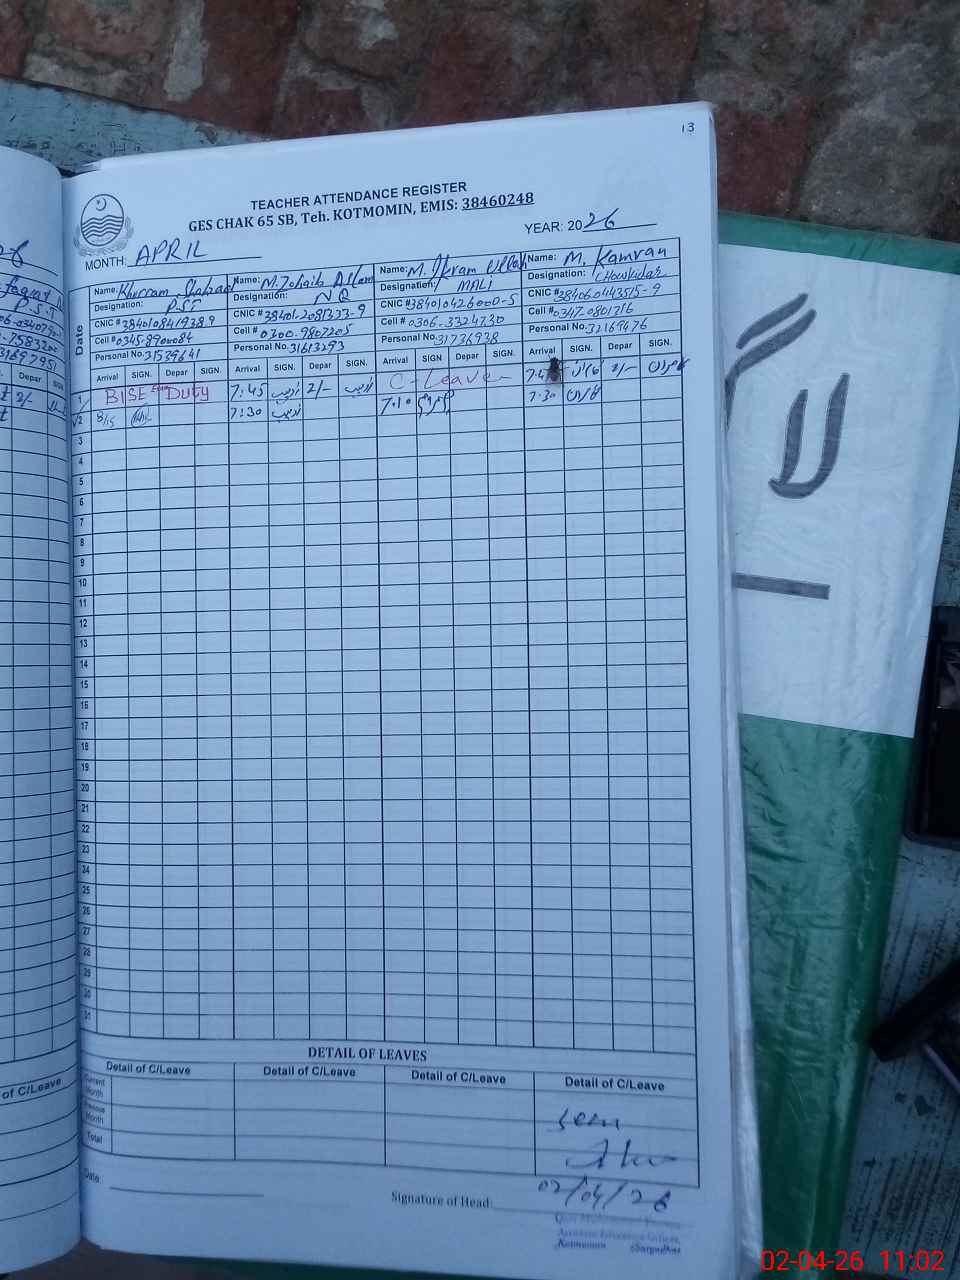 13
TEACHER ATTENDANCE REGISTER
GES CHAK 65 SB, Teh. KOTMOMIN, EMIS: 38460248
MONTH: APRIL YEAR: 2026
Name: Khurram Shahzad Name: M. Zohaib Aslam Name: M. Ikram Ullah Name: M. Kamran
Designation: PST Designation: NQ Designation: MALI Designation: Chowkidar
CNIC # 384010841938.9 CNIC #: 38401-2081323-9 CNIC # 3840104260 00-5 CNIC # 3840604435 15-9
Cell # 0345-8900084 Cell # 0300-9807205 Cell # 0306-3324730 Cell # 0347-0801716
Personal No. 31539641 Personal No. 31613293 Personal No. 31736938 Personal No. 32169476
Date Arrival SIGN. Depar SIGN. Arrival SIGN. Depar SIGN. Arrival SIGN Depar SIGN. Arrival SIGN. Depar SIGN.
1 BISE Duty 7:45 زوہیب 2/- زوہیب C-Leave کامران 2/- کامران
2 8/15 7:30 زوہیب 7.10 7.30 کامران
3
4
5
6
7
8
9
10
11
12
13
14
15
16
17
18
19
20
21
22
23
24
25
26
27
28
29
30
31
DETAIL OF LEAVES
of C/Leave Detail of C/Leave Detail of C/Leave Detail of C/Leave Detail of C/Leave
Current Month
Previous Month
Total
Seen
Date Signature of Head: 02/04/26
Assistant Education Officer,
Kotmomin Sargodha
02-04-26 11:02